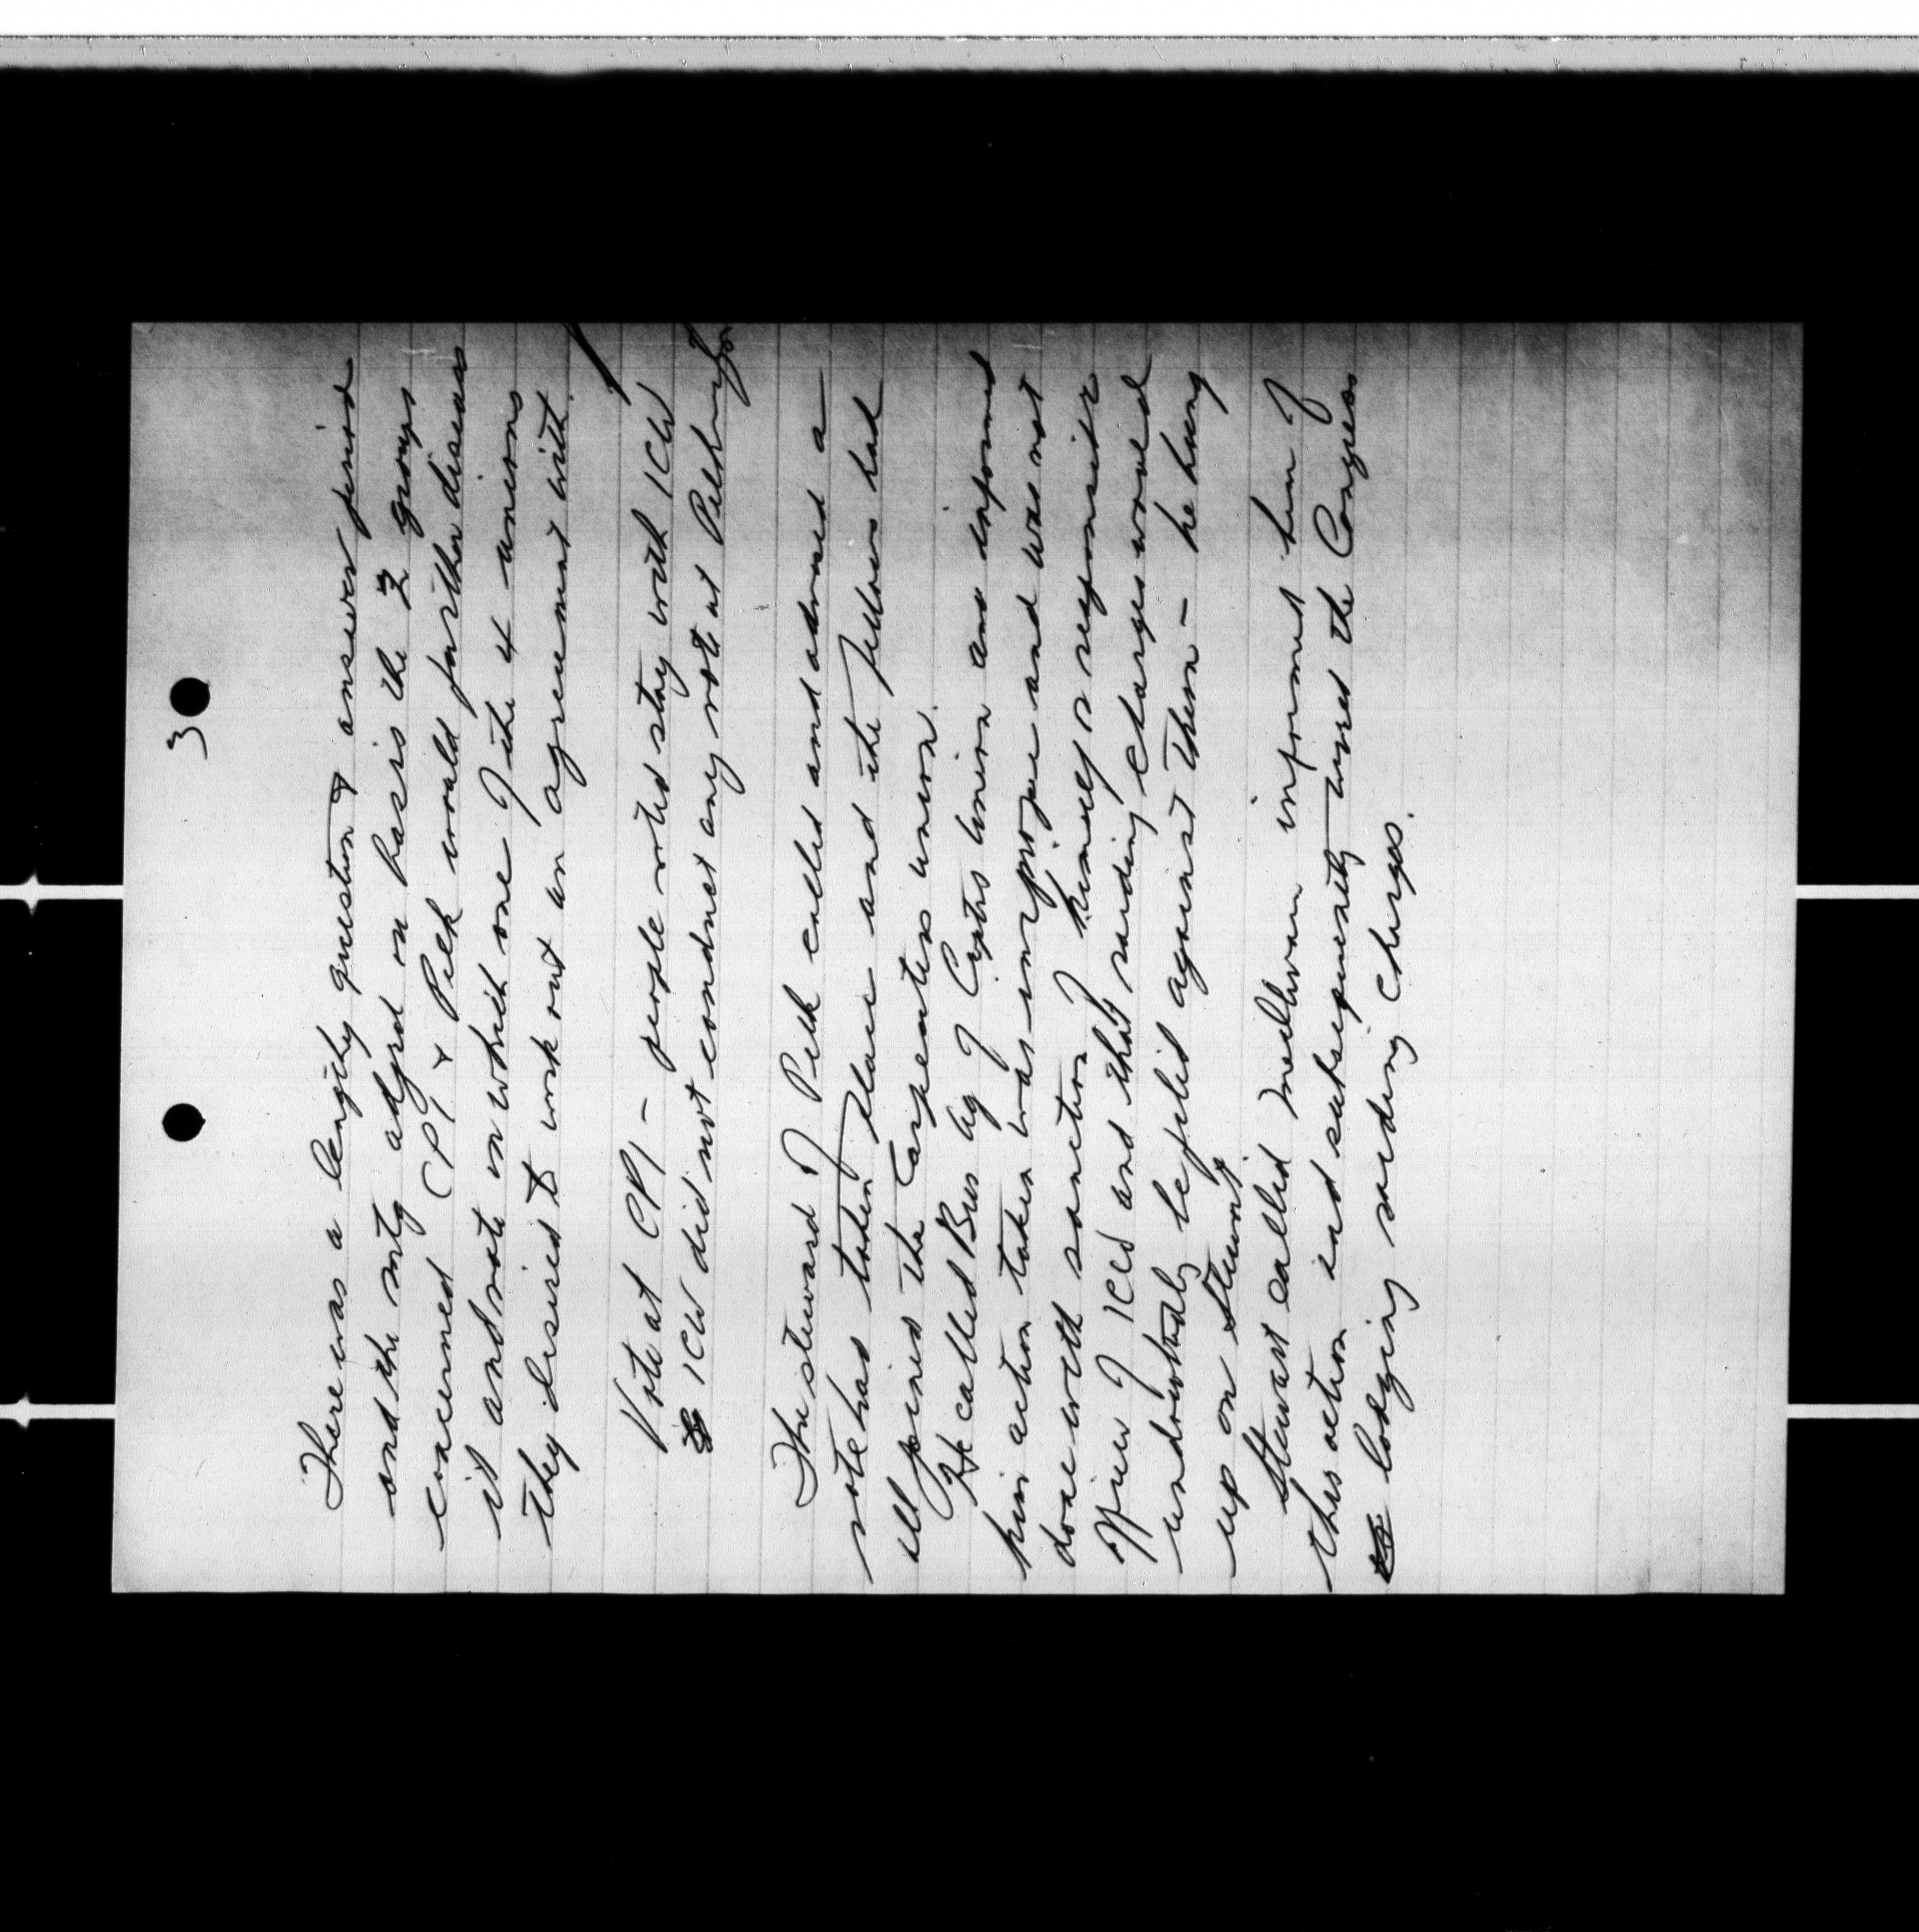 3
There was a lengthy question & answer period
and the mtg adjrd on basis the 2 groups
concerned CPI & Pilk would further discuss
it and vote on which one of the 4 unions
they desired to work out an agreement with.
Vote at CPI - people voted stay with ICW
ICW did not conduct any vote at Pilkington
The steward of Pilk called and advised a
vote had taken place and the fellows had
all joined the Carpenters union.
He called Bus Ag of Cptrs Union and informed
him action taken was improper and was not
done with sanction of himself or responsible
officer of ICW and that raiding charges would
undoubtedly be filed against them - he hung
up on Stewart.
Stewart called informed him of
this action and subsequently wired the Congress
lodging raiding charges.